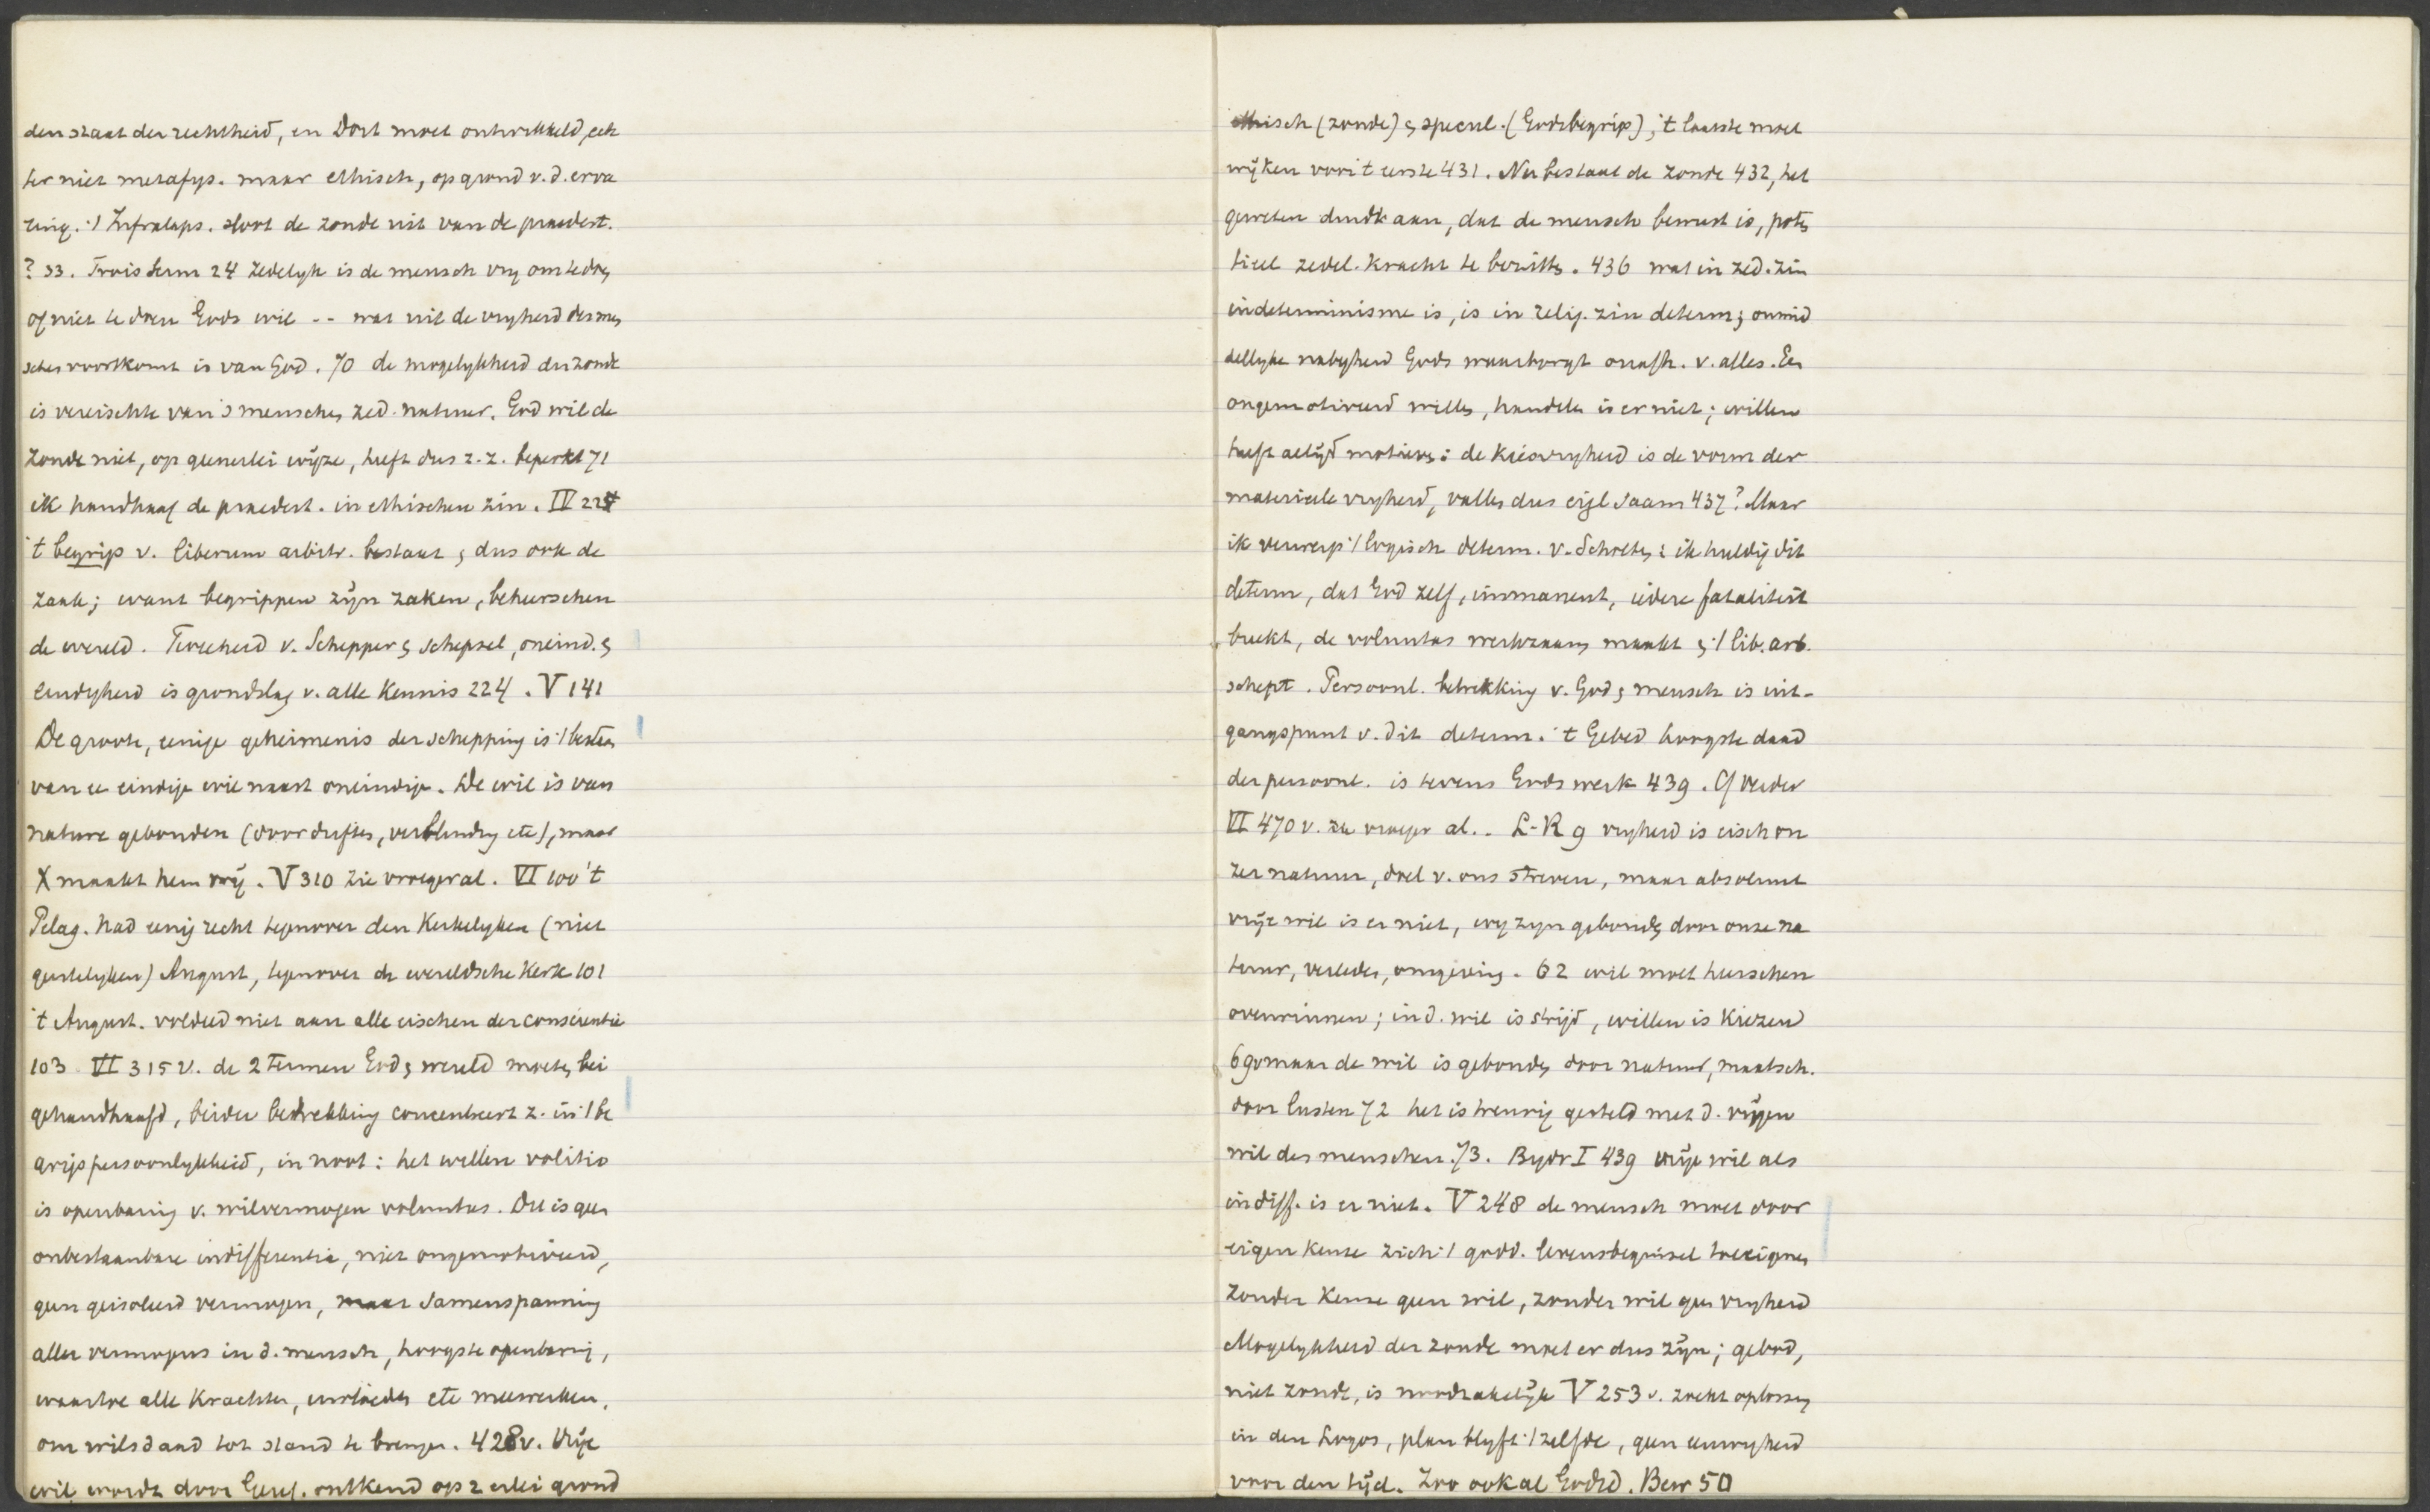 den staat der rechtheid, en Dort moet ontwikkeld, ech
ter niet metafys. maar ethisch, op grond v. d. erva
ring. ·/ Infralaps. sloot de zonde uit van de praedest.
? 33. Trois serm 24 zedelyk is de mensch vry om te doen
of niet te doen Gods wil -- wat uit de vryheid des men
schen voortkomt is van God. 70 de mogelykheid der zonde
is vereischte van 's menschen zed. natuur. God wil de
zonde niet, op generlei wijze, heeft dus z. z. beperkt 71
ik handhaaf de praedest. in ethischen zin. IV 224
't begrip v. liberum arbitr. bestaat, dus ook de
zaak; want begrippen zijn zaken, beheerschen
de wereld. Tweeheid v. Schepper en schepsel, oneind. en
eindigheid is grondslag v. alle kennis 224. V 141
De groote, eenige geheimenis der schepping is ·/ bestaan
van ee eindige wil naast oneindige. De wil is van
nature gebonden (door driften, verblinding etc), maar
X maakt hem vrij. V 310 zie vroeger al. VI 100 't
Pelag. had eenig recht tegenover den kerkelyken (niet
geestelyken) August, tegenover de wereldsche kerk 101
't August. voldeed niet aan alle eischen der conscientie
103 VI 315 v. de 2 termen God en wereld moeten bei
gehandhaafd, beider betrekking concentreert z. in ·/ be
grip persoonlykheid, in noot: het willen volitio
is openbaring v. wilvermogen voluntas. Dit is geen
onbestaanbare indifferentie, niet ongemotiveerd,
geen geisoleerd vermogen, maar samenspanning
aller vermogens in d. mensch, hoogste openbaring,
waartoe alle krachten, invloeden etc meewerken,
om wilsdaad tot stand te brengen. 428 v. Vrije
wil wordt door Geref. ontkend op 2 erlei grond
ethisch (zonde) en specul. (Godsbegrip); 't laatste moet
wijken voor 't eerste 431. Nu bestaat de zonde 432, het
geweten duidt aan, dat de mensch bewust is, poten
tieel zedel. kracht te bezitten. 436 wat in zed. zin
indeterminisme is, is in relig. zin determ; onmid
dellyke nabyheid Gods waarborgt onafh. v. alles. Een
ongemotiveerd willen, handelen is er niet; willen
heeft altijd motieven: de kiesvryheid is de vorm der
materieele vryheid, vallen dus eigl saam 437? Maar
ik verwerp ·/ logisch determ. v. Scholten: ik huldig dit
determ, dat God zelf, immanent, iedere fataliteit
breekt, de voluntas werkzaam maakt en ·/ lib. arb.
schept. Persoonl. betrekking v. God en mensch is uit-
gangspunt v. dit determ. 't Gebed hoogste daad
der persoonl. is tevens Gods werk 439. Cf verder
VI 470 v. zie vroeger al. . L-R 9 vryheid is eisch on
zer natuur, doel v. ons streven, maar absoluut
vrije wil is er niet, wy zyn gebonden door onze na
tuur, verleden, omgeving. 62 wil moet heerschen
overwinnen; in d. wil is strijd, willen is kiezen
69 v maar de wil is gebonden door natuur, maatsch.
door lusten 72 het is treurig gesteld met d. vrijen
wil des menschen. 73. Bydr I 439 vrije wil als
indiff. is er niet. V 248 de mensch moet door
eigen keuze zich ·/ godd. levensbeginsel toeeigenen
zonder keuze geen wil, zonder wil geen vryheid
Mogelykheid der zonde moet er dus zijn; gebod,
niet zonde, is noodzakelijk V 253 v. zoekt oplossing
in den Logos, plan blyft ·/ zelfde, geen
voor den tijd. Zoo ook al Godsd. Bew 50